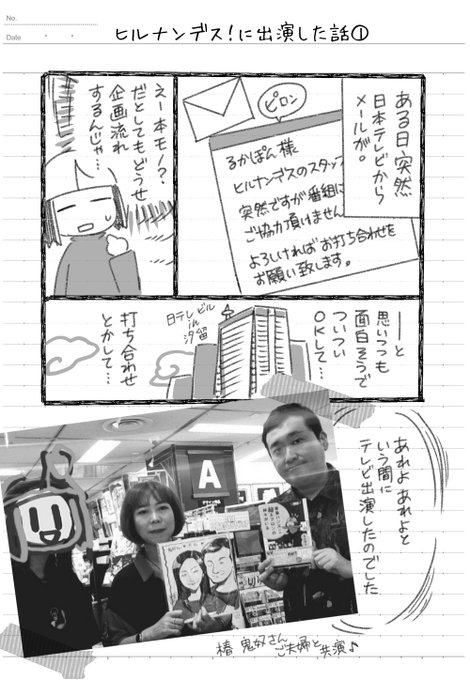 No.
Date
ヒルナンデス!に出演した話①
ある日、突然
日本テレビから
メールが。
ピロン
るかぽん様
ヒルナンデスのスタッフ
突然ですが番組に
ご協力頂けません
よろしければお打ち合わせを
お願い致します。
えー本モノ?
だとしてもどうせ
企画流れ
するんじゃ…
――と
思いつつも
面白そうで
ついつい
OKして…
日テレビル
in
汐留
打ち合わせ
とかして…
あれよあれよと
いう間に
テレビ出演したのでした
A
椿 鬼奴さん
ご夫婦と共演♪